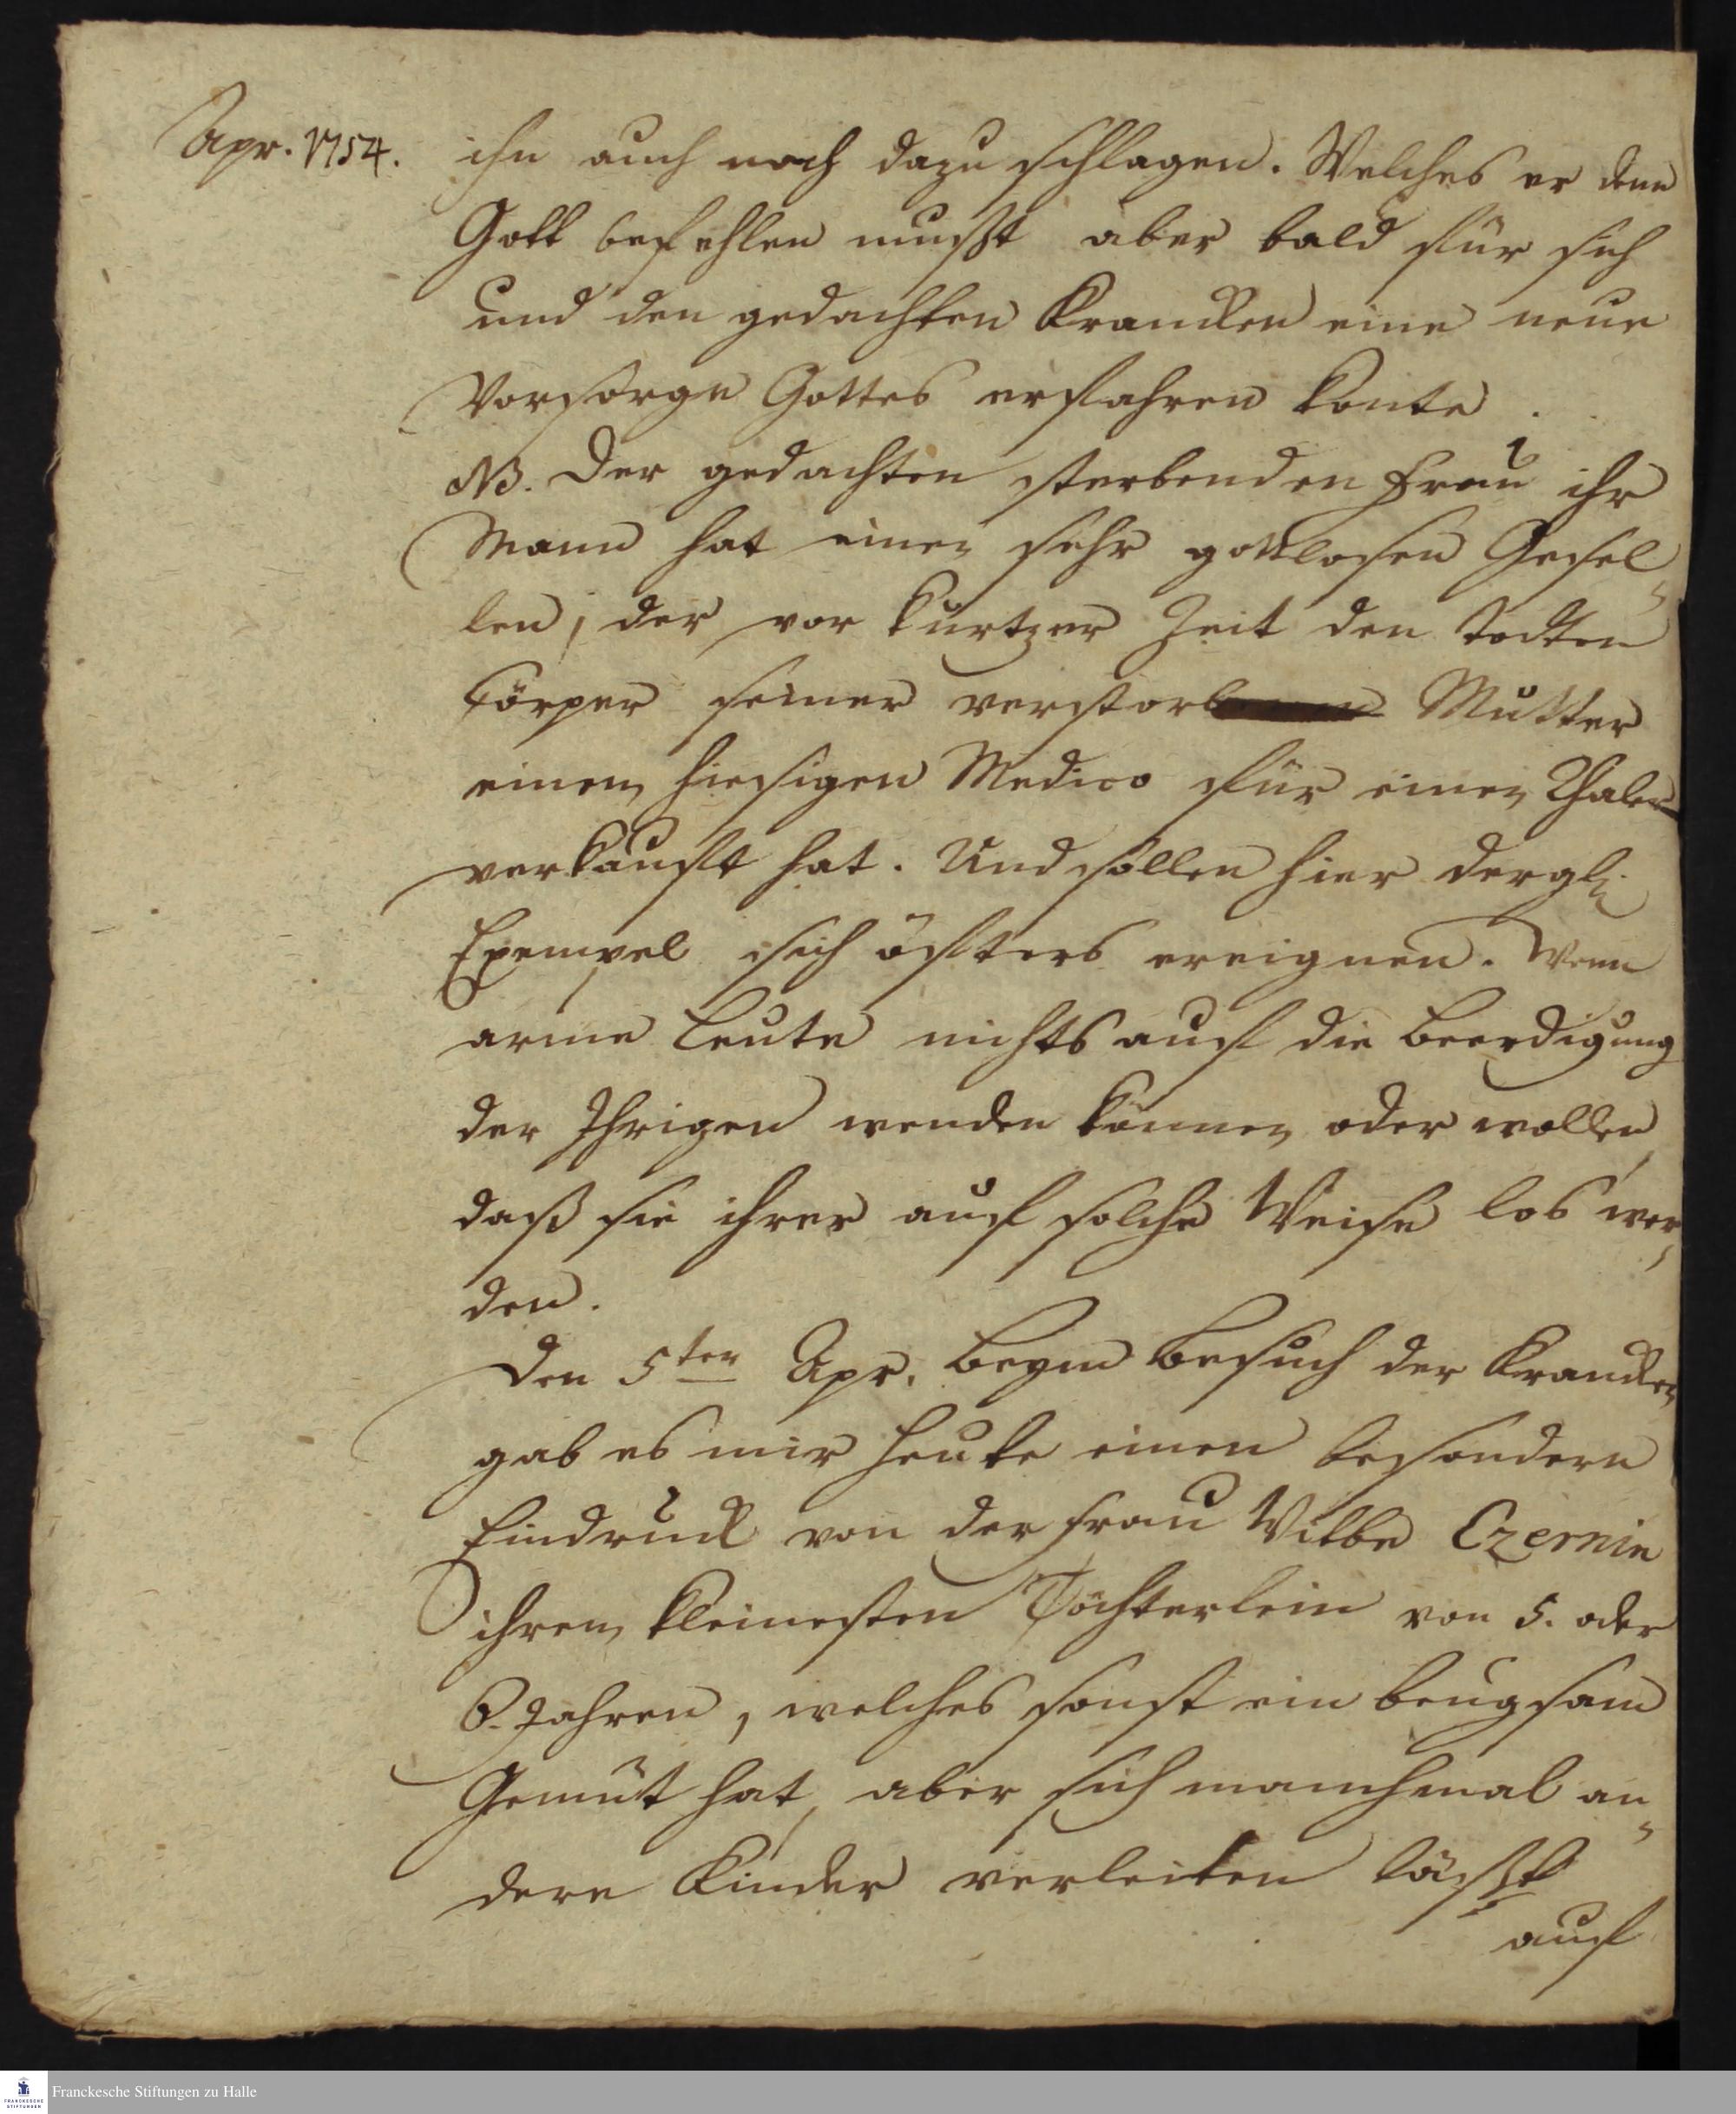 Apr. 1754.
ihn auch noch dazu schlagen. Welches er denn
Gott befehlen mußt aber bald für sich
und den gedachten Krancken eine neue
Vorsorge Gottes erfahren konte.
NB. Der gedachten sterbenden Frau ihr
Mann hat einen sehr gottlosen Gesel-
len, der vor kurtzer Zeit den todten
Cörper seiner verstorbenen Mutter
einem hiesigen Medico für einen Thaler
verkauft hat. Und sollen hier dergl.
Exempel sich öfters ereignen. Wenn
arme Leute nichts auf die Beerdigung
der Ihrigen wenden können oder wollen,
daß sie ihrer auf solche Weise los wer-
den.
Den 5ten Apr. Beym Besuch der Krancken
gab es mir heute einen besondern
Eindruck von der Frau Witbe Czernin
ihrem kleinesten Töchterlein von 5. oder
6. Jahren, welches sonst ein beugsam
Gemüt hat, aber sich manchmal an-
dere Kinder verleiten läßt
auf
Franckesche Stiftungen zu Halle
FRANCKESCHE
STIFTUNGEN